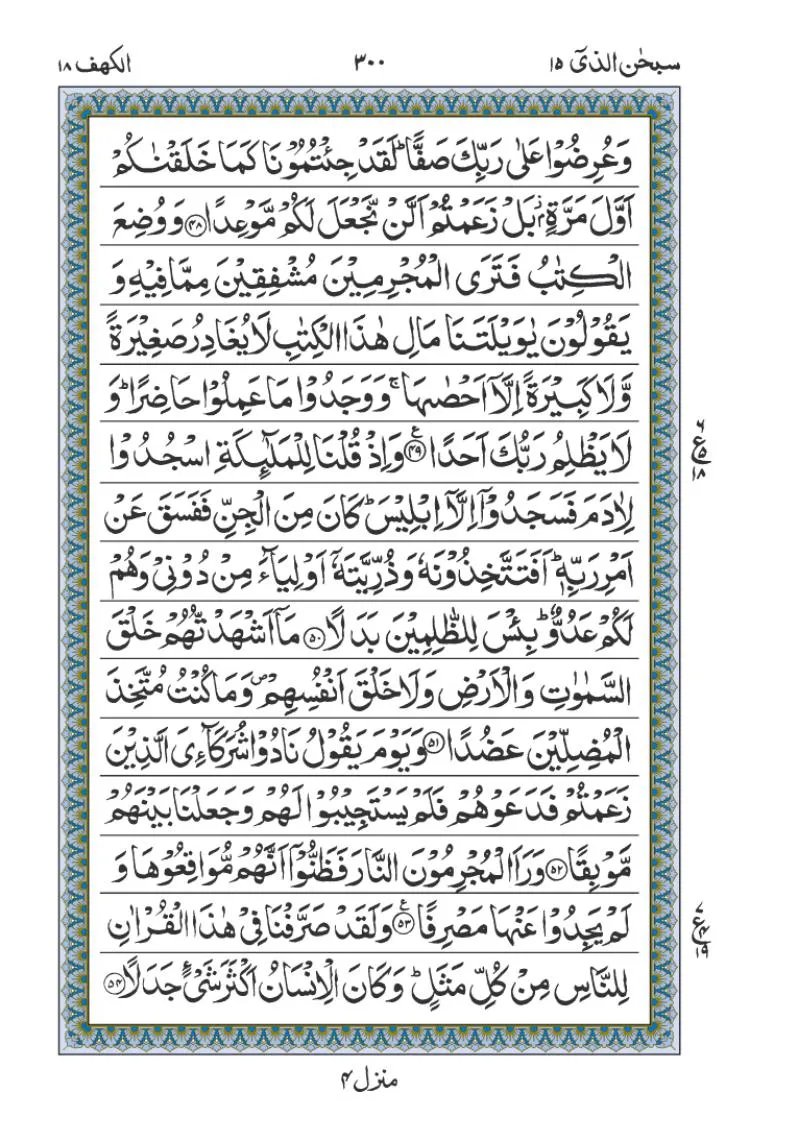 سبحٰن الذیٓ ۱۵
۳۰۰
الکهف ۱۸
وَعُرِضُوۡا عَلٰی رَبِّكَ صَفًّا ؕ لَقَدۡ جِئۡتُمُوۡنَا كَمَا خَلَقۡنٰكُمۡ
اَوَّلَ مَرَّةٍۭ ؗ بَلۡ زَعَمۡتُمۡ اَلَّنۡ نَّجۡعَلَ لَكُمۡ مَّوۡعِدًا ﴿۴۸﴾ وَوُضِعَ
الۡكِتٰبُ فَتَرَی الۡمُجۡرِمِیۡنَ مُشۡفِقِیۡنَ مِمَّا فِیۡهِ وَ
یَقُوۡلُوۡنَ یٰوَیۡلَتَنَا مَالِ هٰذَا الۡكِتٰبِ لَا یُغَادِرُ صَغِیۡرَةً
وَّلَا كَبِیۡرَةً اِلَّاۤ اَحۡصٰىهَا ۚ وَوَجَدُوۡا مَا عَمِلُوۡا حَاضِرًا ؕ وَ
لَا یَظۡلِمُ رَبُّكَ اَحَدًا ﴿۴۹﴾ ع وَاِذۡ قُلۡنَا لِلۡمَلٰٓئِكَةِ اسۡجُدُوۡا
لِاٰدَمَ فَسَجَدُوۡۤا اِلَّاۤ اِبۡلِیۡسَ ؕ كَانَ مِنَ الۡجِنِّ فَفَسَقَ عَنۡ
اَمۡرِ رَبِّهٖ ؕ اَفَتَتَّخِذُوۡنَهٗ وَذُرِّیَّتَهٗۤ اَوۡلِیَآءَ مِنۡ دُوۡنِیۡ وَهُمۡ
لَكُمۡ عَدُوٌّ ؕ بِئۡسَ لِلظّٰلِمِیۡنَ بَدَلًا ﴿۵۰﴾ مَاۤ اَشۡهَدۡتُّهُمۡ خَلۡقَ
السَّمٰوٰتِ وَالۡاَرۡضِ وَلَا خَلۡقَ اَنۡفُسِهِمۡ ۪ وَمَا كُنۡتُ مُتَّخِذَ
الۡمُضِلِّیۡنَ عَضُدًا ﴿۵۱﴾ وَیَوۡمَ یَقُوۡلُ نَادُوۡا شُرَكَآءِیَ الَّذِیۡنَ
زَعَمۡتُمۡ فَدَعَوۡهُمۡ فَلَمۡ یَسۡتَجِیۡبُوۡا لَهُمۡ وَجَعَلۡنَا بَیۡنَهُمۡ
مَّوۡبِقًا ﴿۵۲﴾ وَرَاَ الۡمُجۡرِمُوۡنَ النَّارَ فَظَنُّوۡۤا اَنَّهُمۡ مُّوَاقِعُوۡهَا وَ
لَمۡ یَجِدُوۡا عَنۡهَا مَصۡرِفًا ﴿۵۳﴾ ع وَلَقَدۡ صَرَّفۡنَا فِیۡ هٰذَا الۡقُرۡاٰنِ
لِلنَّاسِ مِنۡ كُلِّ مَثَلٍ ؕ وَكَانَ الۡاِنۡسَانُ اَكۡثَرَ شَیۡءٍ جَدَلًا ﴿۵۴﴾
۶
ع ۵
۱۸
۷
ع ۴
۱۹
منزل ۴